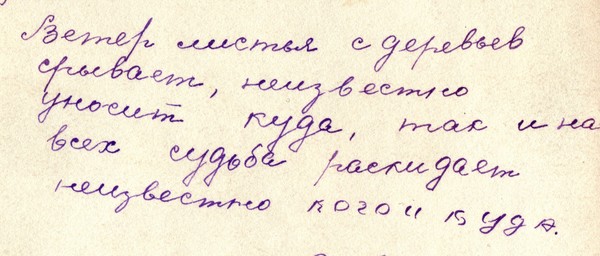 Ветер листья с деревьев
срывает, неизвестно
уносит куда, так и на
всех судьба раскидает
неизвестно кого и куда.